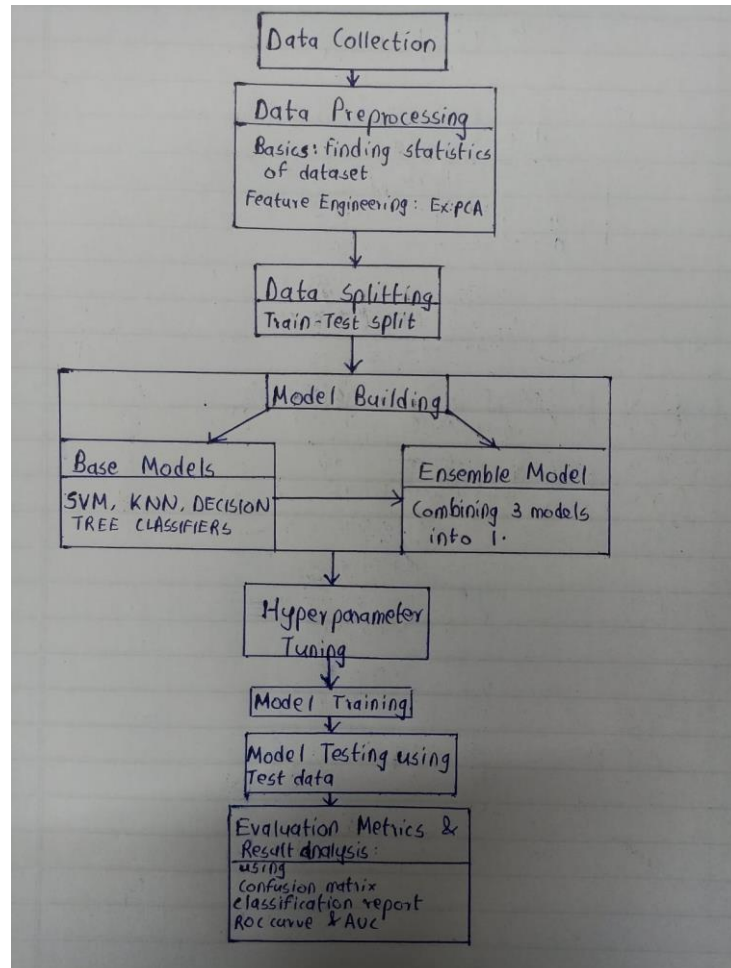 Data Collection
Data Preprocessing
Basics: finding statistics
of dataset
Feature Engineering: Ex:PCA
Data Splitting
Train-Test split
Model Building
Base Models
SVM, KNN, DECISION
TREE CLASSIFIERS
Ensemble Model
Combining 3 models
into 1.
Hyperparameter
Tuning
Model Training
Model Testing using
Test data
Evaluation Metrics &
Result analysis:
using
Confusion matrix
classification report
ROC curve & AUC